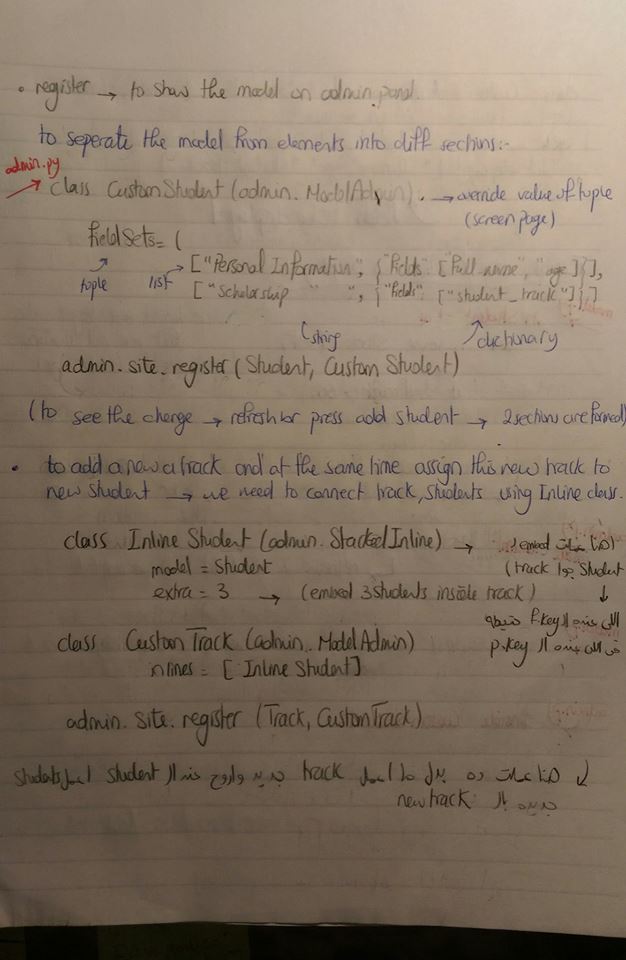 • register → to show the model on admin panel.
to seperate the model from elements into diff sections:-
admin.py
class CustomStudent (admin.ModelAdmin). → override value of tuple
(screen page)
fieldSets = (
["Personal Information", {"fields": ["full_name", "age"]}],
tuple list
["Scholarship " ", {"fields": ["student_track"]}]
string
dictionary
admin.site.register (Student, Custom Student)
(to see the change → refresh or press add student → 2 sections are formed)
• to add a new a track and at the same time assign this new track to
new student → we need to connect track, students using Inline class.
class Inline Student (admin.StackedInline) → هنا عملت embed ل
model = Student (track جوا Student
extra = 3 → (embed 3 students inside track) ↓
اللي عنده ال F.key
class Custom Track (admin.ModelAdmin) في اللي عنده ال p.key
inlines = [Inline Student]
admin.site.register (Track, CustomTrack)
↓ هنا عملت ده بدل ما اعمل track جديد واروح عند ال student اعمل students
جديده بال new track